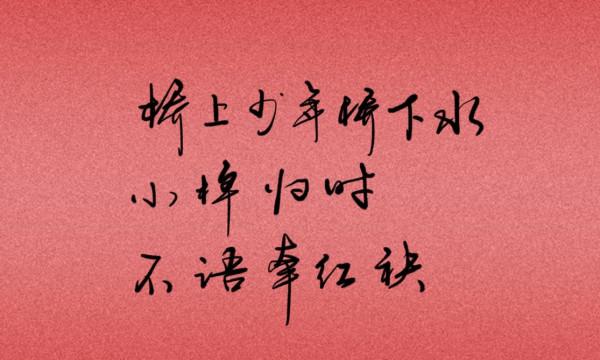 桥上少年桥下水
小棹归时
不语牵红袂